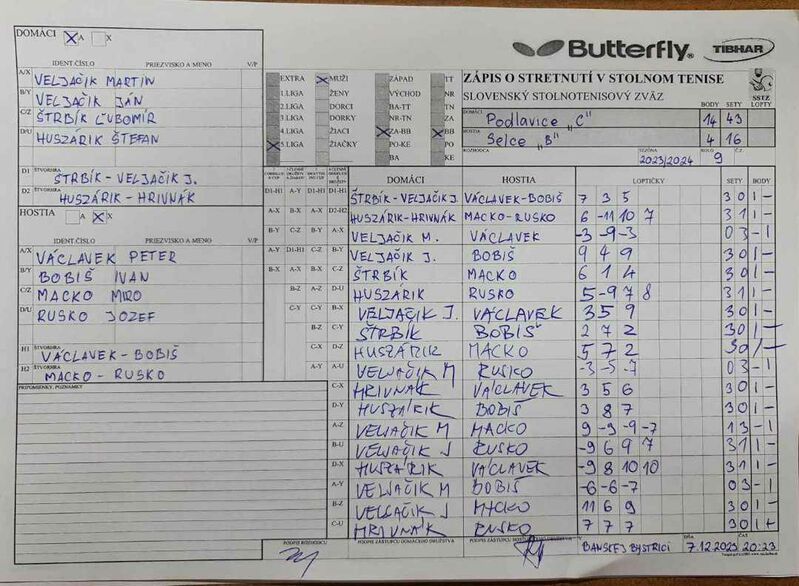 DOMÁCI X A X
IDENT.ČÍSLO PRIEZVISKO A MENO V/P
A/X VELJAČIK MARTIN
B/Y VELJAČIK JÁN
C/Z ŠTRBÍK ĽUBOMÍR
D/U HUSZÁRIK ŠTEFAN
D1 ŠTVORHRA ŠTRBÍK-VELJAČIK J.
D2 ŠTVORHRA HUSZÁRIK-HRIVNÁK
HOSTIA A X X
IDENT.ČÍSLO PRIEZVISKO A MENO V/P
A/X VÁCLAVEK PETER
B/Y BOBIŠ IVAN
C/Z MACKO MIRO
D/U RUSKO JOZEF
H1 ŠTVORHRA VÁCLAVEK-BOBIŠ
H2 ŠTVORHRA MACKO-RUSKO
PRIPOMIENKY, POZNÁMKY
Butterfly TIBHAR
EXTRA X MUŽI ZÁPAD TT
1.LIGA ŽENY VÝCHOD NR
2.LIGA DORCI BA-TT TN
3.LIGA DORKY NR-TN ZA
4.LIGA ŽIACI X ZA-BB X BB
X 5.LIGA ŽIAČKY PO-KE PO
BA KE
ZÁPIS O STRETNUTÍ V STOLNOM TENISE
SLOVENSKÝ STOLNOTENISOVÝ ZVÄZ
SSTZ
BODY SETY LOPTY
DOMÁCI Podlavice "C" 14 43
HOSTIA Selce "B" 4 16
ROZHODCA SEZÓNA 2023/2024 KOLO 9 Č.Z.
DOMÁCI HOSTIA LOPTIČKY SETY BODY
D1-H1 A-Y D1-H1 D1-H1 ŠTRBÍK-VELJAČIK J. VÁCLAVEK-BOBIŠ 7 3 5 3 0 1 -
A-X B-X A-X D2-H2 HUSZÁRIK-HRIVNÁK MACKO-RUSKO 6 -11 10 7 3 1 1 -
B-Y C-Z B-Y A-X VELJAČIK M. VÁCLAVEK -3 -9 -3 0 3 - 1
A-Y D1-H1 C-Z B-Y VELJAČIK J. BOBIŠ 9 4 9 3 0 1 -
B-X A-X B-X C-Z ŠTRBÍK MACKO 6 1 4 3 0 1 -
B-Z A-Z D-U HUSZÁRIK RUSKO 5 -9 7 8 3 1 1 -
C-Y C-Y B-X VELJAČIK J. VÁCLAVEK 3 5 9 3 0 1 -
B-Z C-Y ŠTRBÍK BOBIŠ 2 7 2 3 0 1 -
C-X D-Z HUSZÁRIK MACKO 5 7 2 3 0 1 -
A-Y A-U VELJAČIK M RUSKO -3 -5 -7 0 3 - 1
C-X HRIVNÁK VÁCLAVEK 3 5 6 3 0 1 -
D-Y HUSZÁRIK BOBIŠ 3 8 7 3 0 1 -
A-Z VELJAČIK M MACKO 9 -9 -9 -7 1 3 - 1
B-U VELJAČIK J RUSKO -9 6 9 7 3 1 1 -
D-X HUSZÁRIK VÁCLAVEK -9 8 10 10 3 1 1 -
A-Y VELJAČIK M BOBIŠ -6 -6 -7 0 3 - 1
B-Z VELJAČIK J MACKO 11 6 9 3 0 1 -
C-U HRIVNÁK RUSKO 7 7 7 3 0 1 +
PODPIS ROZHODCU PODPIS ZÁSTUPCU DOMÁCEHO DRUŽSTVA PODPIS ZÁSTUPCU HOSŤUJÚCEHO DRUŽSTVA V BANSKEJ BYSTRICI DŇA 7.12.2023 ČAS 20:23